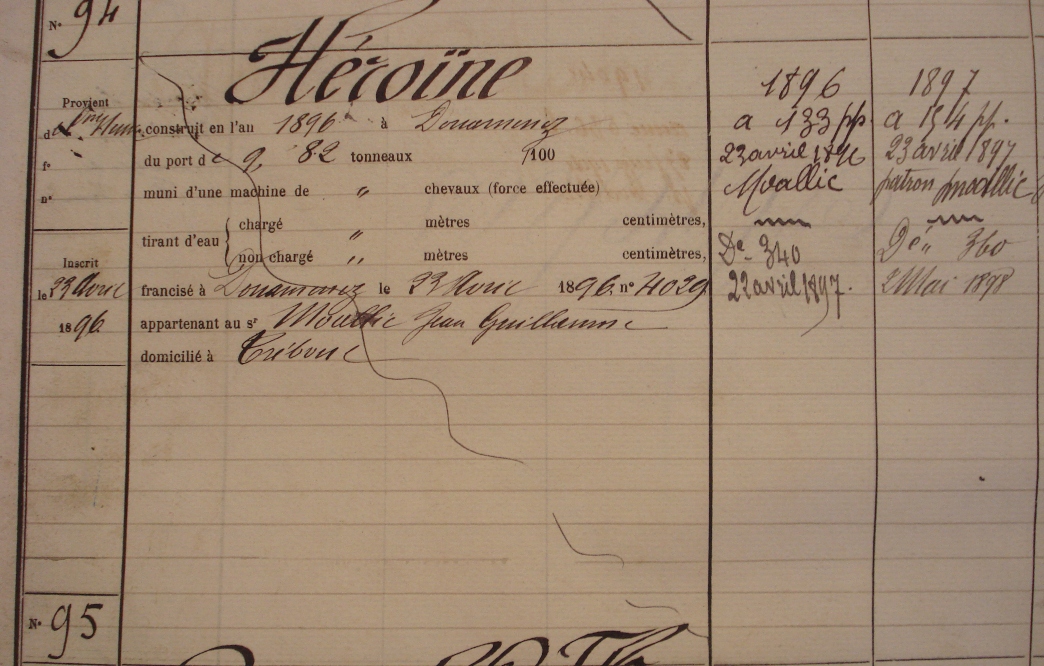 N° 94
Héroïne
Provient
d
f°
n°
Inscrit
le 23 Avril
1896
construit en l'an 1896 à Douarnenez
du port de 9, 82 tonneaux /100
muni d'une machine de " chevaux (force effectuée)
tirant d'eau { chargé " mètres centimètres,
non chargé " mètres centimètres,
francisé à Douarnenez le 23 Avril 1896 n° 4029
appartenant au sr Moallic Jean Guillaume
domicilié à Tréboul
1896
a 133 pp.
23 avril 1896
Moallic
De 340
22 avril 1897.
1897
a 154 pp.
23 avril 1897
patron Moallic
De " 360
2 Mai 1898
N° 95